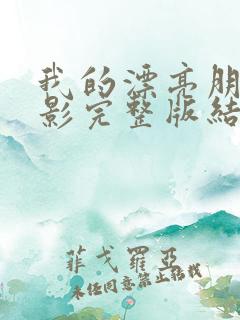 我的漂亮朋
影完整版结
菲戈羅亞
未经同意禁止转载